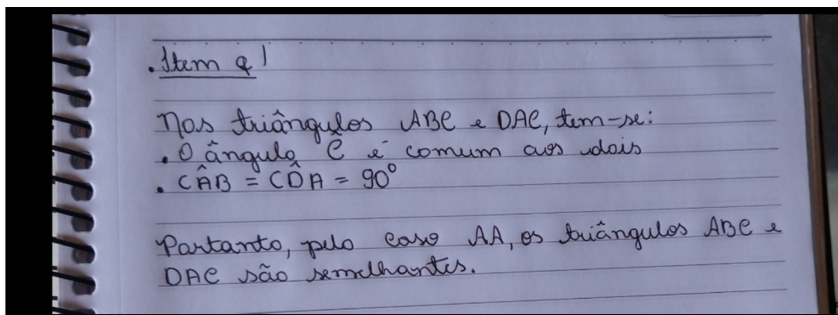 . Item a)
Nos triângulos ABC e DAC, tem-se:
. O ângulo Ĉ é comum aos dois
. CÂB = CD̂A = 90°
Portanto, pelo caso AA, os triângulos ABC e
DAC são semelhantes.